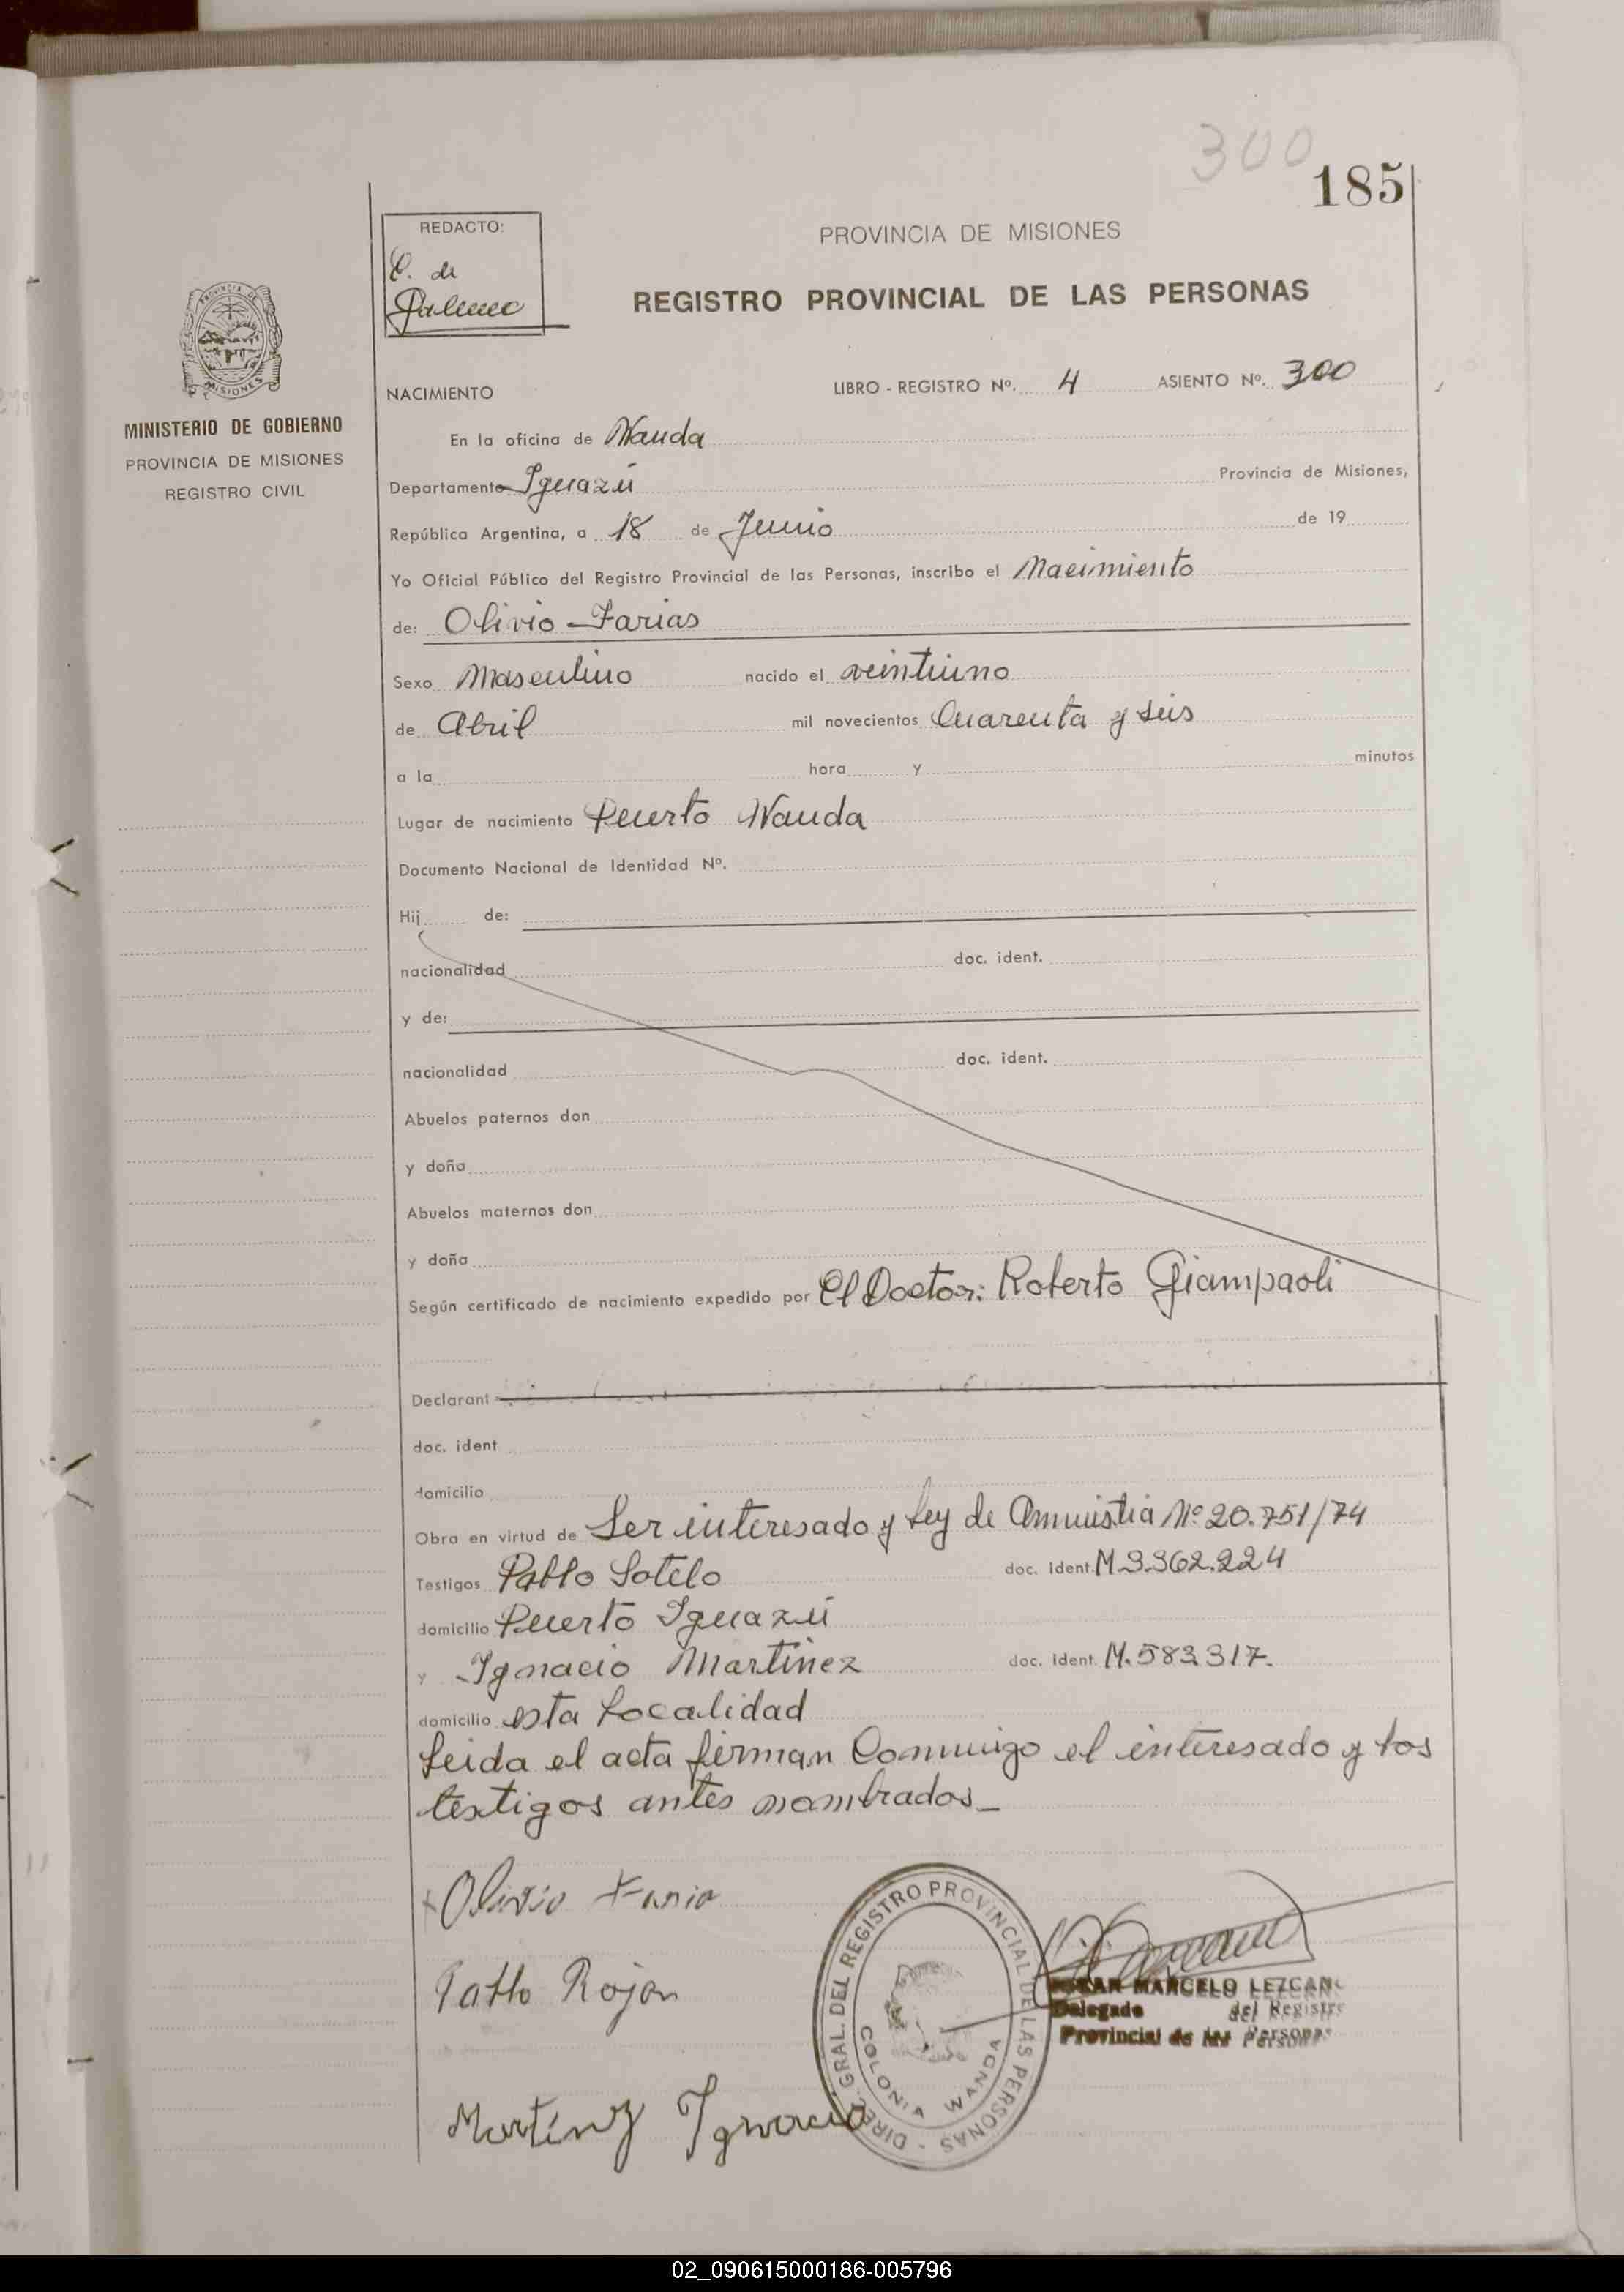 300
185
REDACTO:
C. de
PROVINCIA DE MISIONES
REGISTRO PROVINCIAL DE LAS PERSONAS
MINISTERIO DE GOBIERNO
PROVINCIA DE MISIONES
REGISTRO CIVIL
NACIMIENTO LIBRO - REGISTRO Nº. 4 ASIENTO Nº. 300
En la oficina de Wanda
Departamento Iguazú Provincia de Misiones,
República Argentina, a 18 de Junio de 19
Yo Oficial Público del Registro Provincial de las Personas, inscribo el Nacimiento
de: Olivio Farias
Sexo Masculino nacido el veintiuno
de Abril mil novecientos Cuarenta y seis
a la hora y minutos
Lugar de nacimiento Puerto Wanda
Documento Nacional de Identidad Nº.
Hij de:
nacionalidad doc. ident.
y de:
nacionalidad doc. ident.
Abuelos paternos don
y doña
Abuelos maternos don
y doña
Según certificado de nacimiento expedido por El Doctor: Roberto Giampaoli
Declarant
doc. ident
domicilio
Obra en virtud de Ser interesado y Ley de Amnistia Nº 20.751/74
Testigos Pablo Sotelo doc. ident. M 3.362.224
domicilio Puerto Iguazú
y Ignacio Martinez doc. ident. M.583317.
domicilio esta Localidad
Leida el acta firman Conmigo el interesado y los
testigos antes nombrados_
Olivio Faria
Pablo Rojas
Martinez Ignacio
DIREC. GRAL. DEL REGISTRO PROVINCIAL DE LAS PERSONAS -
COLONIA WANDA
OSCAR MARCELO LEZCANO
Delegado del Registro
Provincial de las Personas
02_090615000186-005796